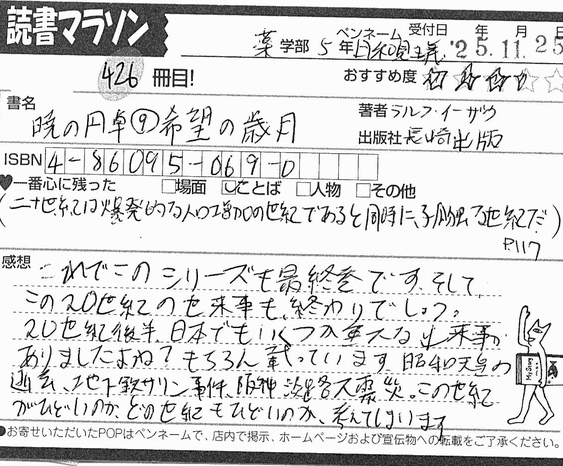 読書マラソン
ペンネーム 受付日 年 月 日
薬学部 5年 日和見主義 '25.11.25
426冊目! おすすめ度
書名
暁の円卓⑨希望の歳月
著者 ラルフ・イーザウ
出版社 長崎出版
ISBN 4-86095-069-0
♥一番心に残った □場面 □ことば □人物 □その他
(二十世紀は爆発的な人口増加の世紀であると同時に、子 世紀だ)
P.117
感想
これでこのシリーズも最終巻です。そして、
この20世紀の出来事も、終わりでしょう。
20世紀後半、日本でもいくつか重大な出来事が
ありましたよね?もちろん載っています。昭和天皇の
逝去、地下鉄サリン事件、阪神淡路大震災。この世紀
がひどいのか、どの世紀もひどいのか、考えてしまいます
●お寄せいただいたPOPはペンネームで、店内で掲示、ホームページおよび宣伝物への転載をご了承ください。